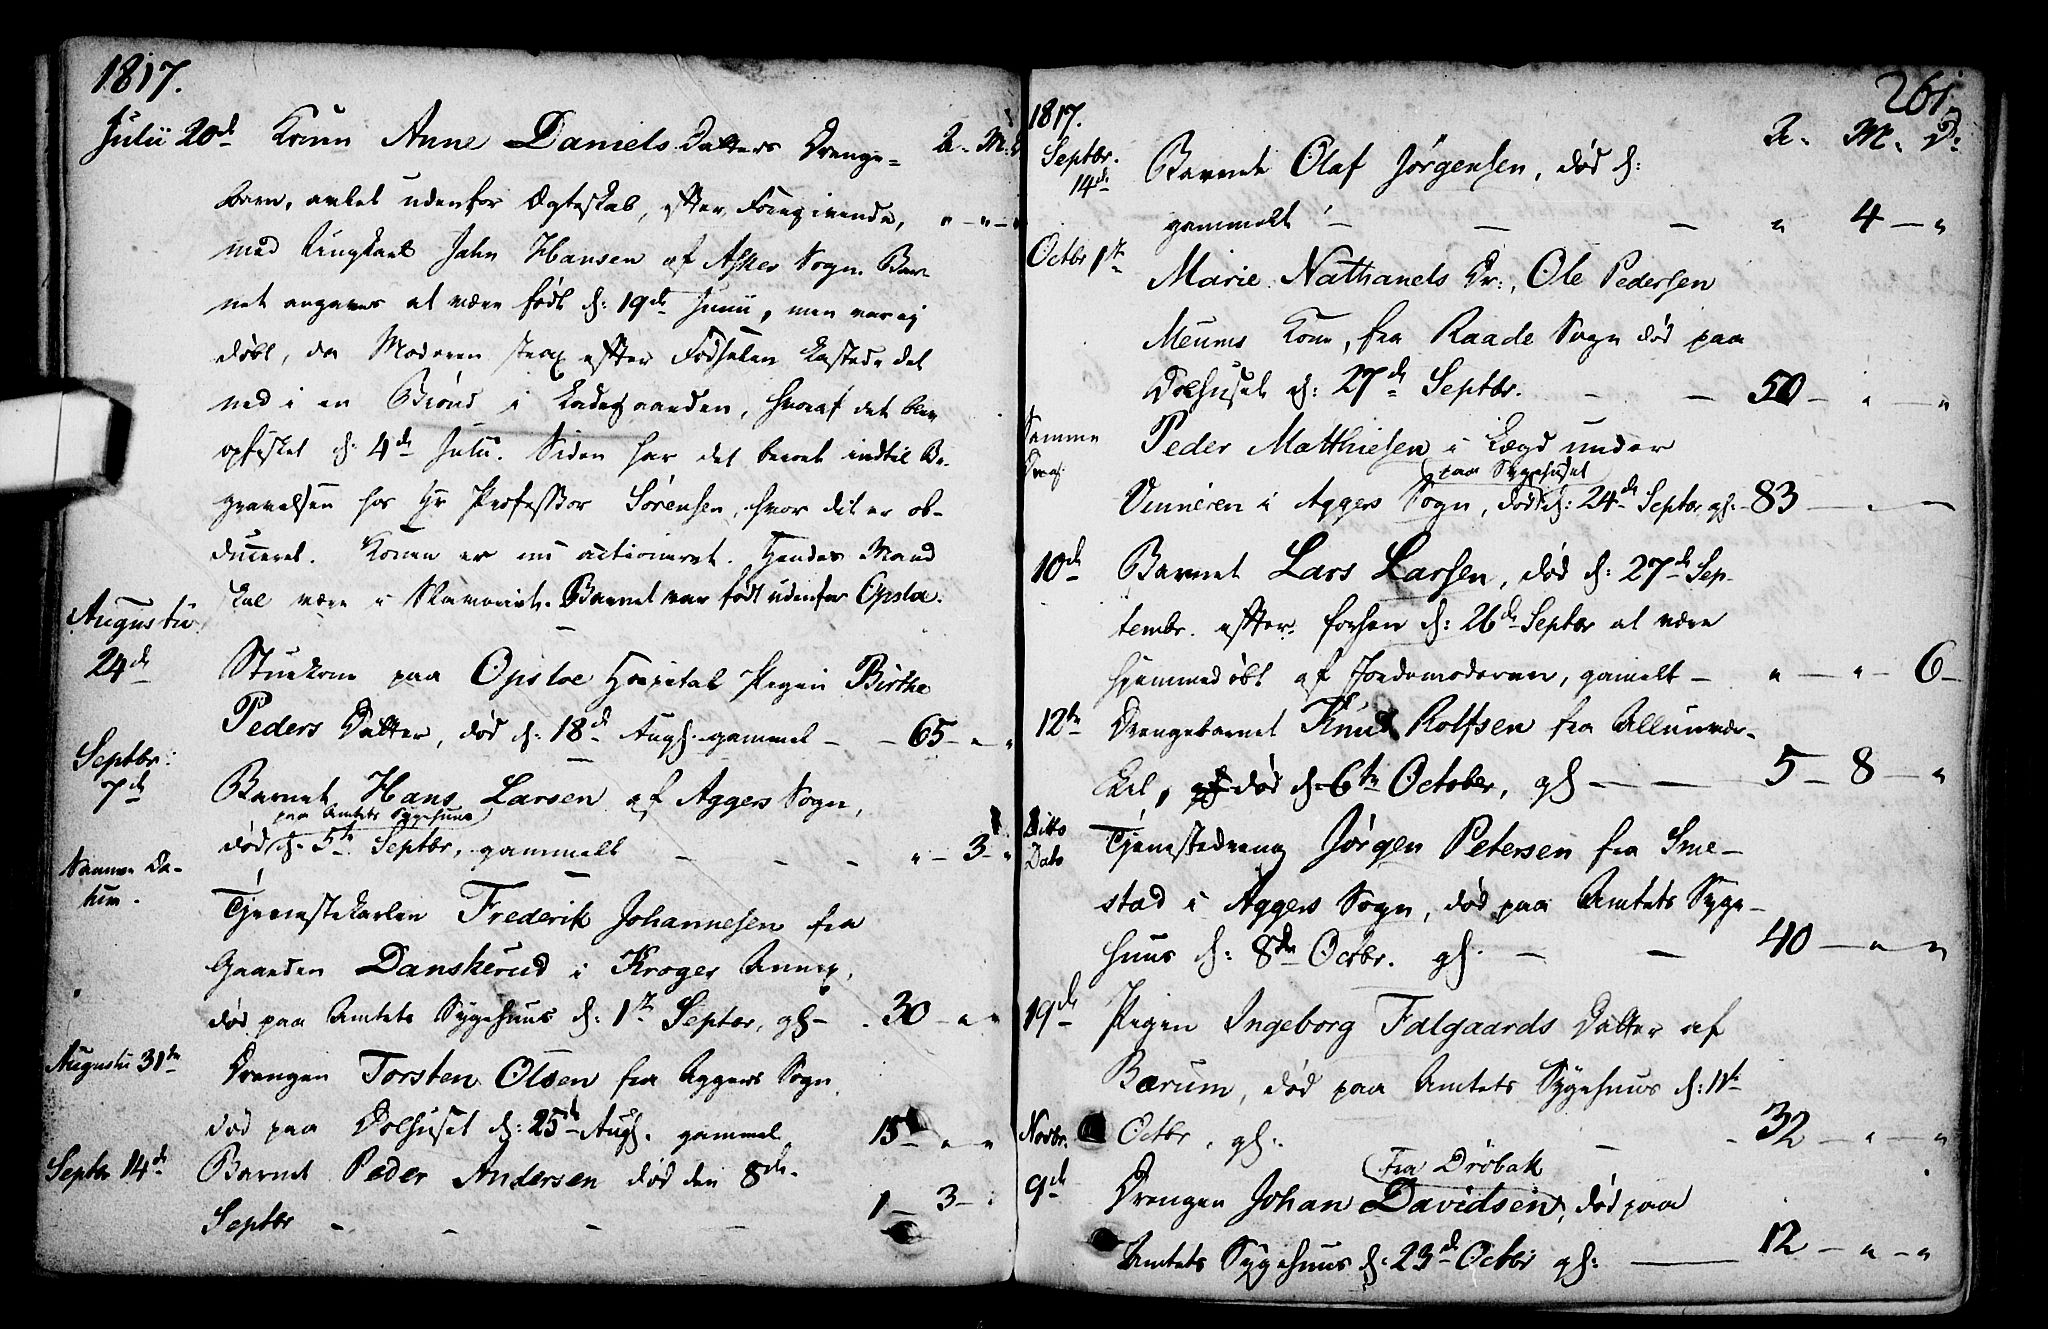 1817.
Julii 20de Konen Anne Daniels Datters Drenge= A. M. D
barn, avlet udenfor Ægteskab, efter Foregivende, " - " - "
med Ungkarl John Hansen af Asker Sogn. Bar-
net angaves at være født d: 19de Junii, men var ej
døbt, da Moderen strax efter Fødselen kastede det
ned i en Brønd i Ladegaarden, hvoraf det blev
opfisket d: 4de Julii. Siden har det beroet indtil Be-
gravelsen hos Hr Professor Sørensen, hvor det er ob-
duceret. Konen er nu actioneret. Hendes Mand
skal være i Slaveriet. Barnet var født udenfor Opsloe.
Augustii
24de Stuekone paa Opsloe Hospital Pigen Birthe
Peders Datter, død d: 18de Augs. gammel - - 65 - " - "
Septbr:
7de Barnet Hans Larsen af Aggers Sogn,
paa Amtets Sygehuus
død d. 5te Septbr, gammelt - - - " - 3 - "
Samme Da-
tum. Tjenestekarlen Frederik Johannesen fra
Gaarden Danskerud i Kroger Annex,
død paa Amtets Sygehuus d: 1ste Septbr, gl - 30 - " - "
Augustii 31te Drengen Torsten Olsen fra Aggers Sogn
død paa Dolhuset d: 25de Augs. gammel 15 - " - "
Septbr 14de Barnet Peder Andersen død den 8de
Septbr - - - - 1 - 3 - "
261
1817. A. M. D:
Septbr.
14de Barnet Olaf Jørgensen, død d:
gammelt - - - " 4 - "
Octbr 1ste Marie Nathanels Dr:, Ole Pedersen
Meums Kone, fra Raade Sogn død paa
Dolhuset d: 27de Septbr. - - 50 - " - "
Samme
Dag. Peder Matthiesen i Lægd under
paa Sygehuset
i Aggers Sogn, død d: 24de Septbr gl. - 83 - " -
10de Barnet Lars Larsen, død d: 27de Sep-
tembr. efter forhen d: 26de Septbr at være
hjemmedøbt af Jordemoderen, gamelt - " - " - 6 -
12te Drengebarnet Knud Rolfsen fra Allunvær-
ket, død d. 6te October, gl - 5 - 8 - "
Ditto
Dato Tjenestedreng Jørgen Petersen fra Sme-
stad i Aggers Sogn, død paa Amtets Syge-
huus d: 8de Octbr. gl. - - 40 - " - "
19de Pigen Ingeborg Falgaards Datter af
Bærum, død paa Amtets Sygehuus d: 11te
Octbr, gl. - - 32 - " - "
Novbr.
fra Drøbak
9de Drengen Johan Davidsen, død paa
Amtets Sygehuus d. 23de Octbr gl: - 12 - " - "